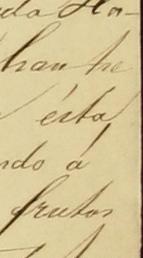 da Ho-
han he
ésta
ndo á
frutos